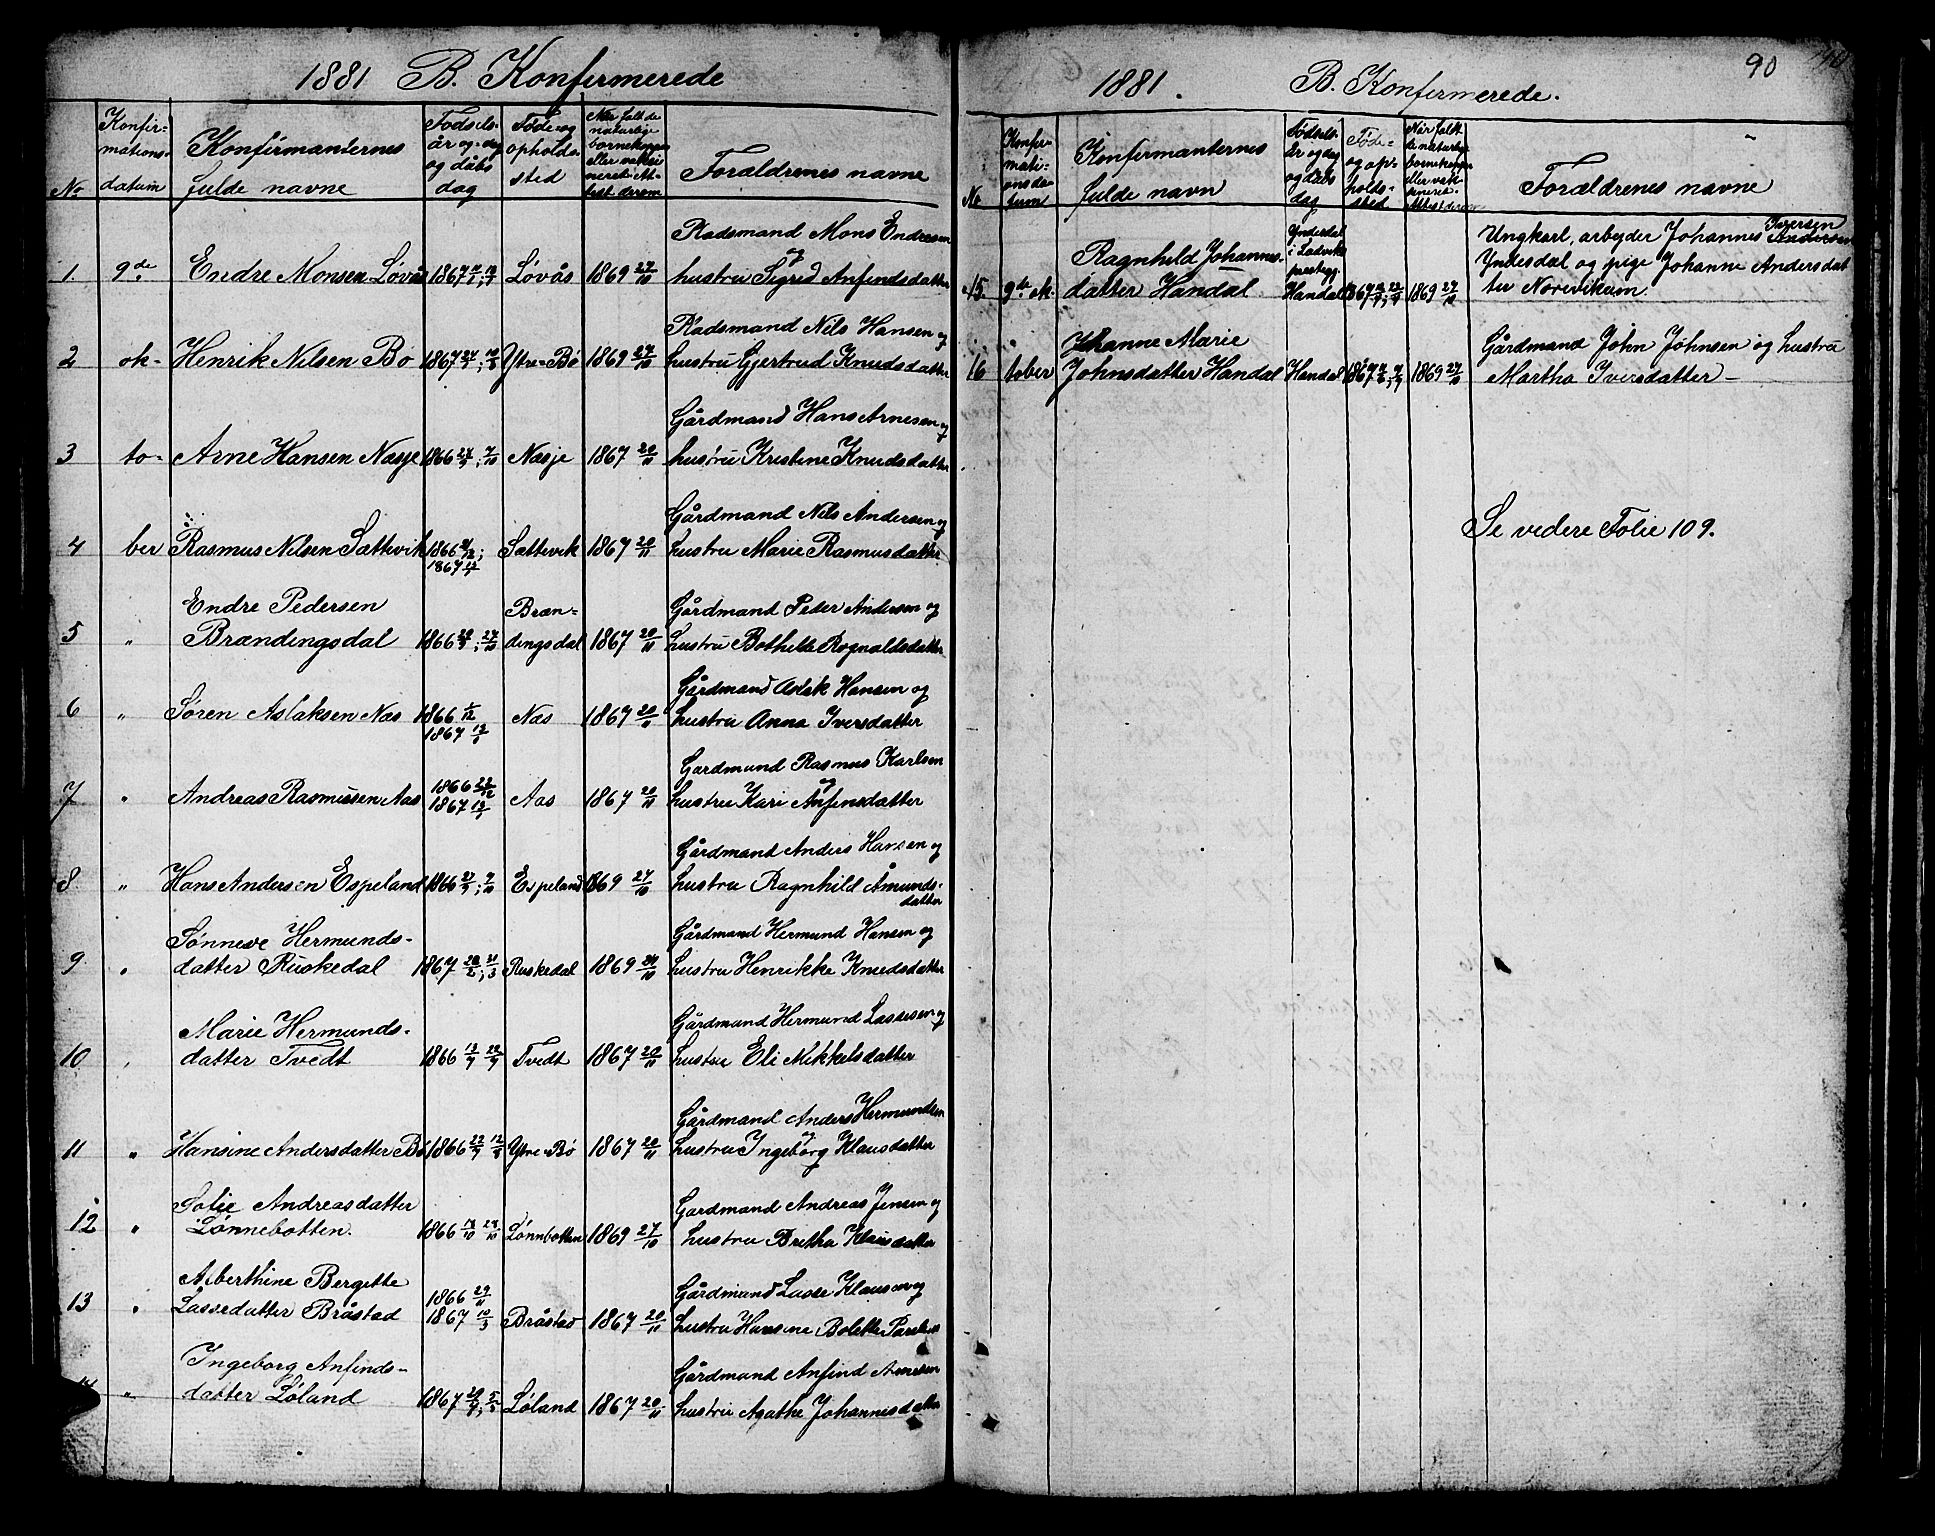 1881 B. Konfirmerede
No
Konfir-
mations-
datum
Konfirmanternes
fulde navne
Fødsels-
år og-dag
og dåbs
dag
Føde-og
opholds-
sted
Når faldt de
naturlige
børnekopper
eller vakci
neret. At-
test derom
Forældrenes navne
1. 9de Endre Monsen Løvås 1867 Løvås 1869 27/10
Kadsmand Mons Endresen
og
hustru Sigrid Anfindsdatter
2 ok- Henrik Nilsen Bø 1867 Ytre-Bø 1869 27/10
Kadsmand Nils Hansen og
hustru Gjertrud Knudsdatter
3 to- Arne Hansen Næsje 1866 27/9; 7/10 Næsje 1867 20/11
Gårdmand Hans Arnesen og
hustru Kristine Knudsdatter
4 ber Rasmus Nilsen Sættevik 1866
1867
Sættevik 1867 20/11
Gårdmand Nils Andersen og
hustru Marie Rasmusdatter
5 " Endre Pedersen
Brændingsdal 1866
Bræn-
dingsdal 1867 20/11
Gårdmand Peder Andersen og
hustru Bothilde Rognaldsdatter
6 " Søren Aslaksen Næs 1866
1867
Næs 1867 20/11
Gårdmand Aslak Hansen og
hustru Anna Iversdatter
7 " Andreas Rasmussen Aas 1866
1867
Aas 1867 20/11
Gardmand Rasmus Karlsen
og
hustru Kari Anfinsdatter
8 " Hans Andersen Espeland 1866 27/9; 7/10 Espeland 1869 27/10
Gårdmand Anders Hansen og
hustru Ragnhild Åmunds-
datter
9 " Sønneve Hermunds-
datter Ruskedal 1867 Ruskedal 1869
Gårdmand Hermund Hansen og
hustru Henrikke Knudsdatter
10 " Marie Hermunds-
datter Tvedt 1866 Tvedt 1867 20/11
Gårdmand Hermund Lassesen og
hustru Eli Mikkelsdatter
11 " Hansine Andersdatter Bø 1866 Ytre-Bø 1867 20/11
Gårdmand Anders Hermundsen
og
hustru Ingeborg Klausdatter
12 " Sofie Andreasdatter
Lønnebotten. 1866 Lønnbotten 1869 27/10
Gardmand Andreas Jensen og
hustru Bretha Klausdatter
13 " Alberthine Bergitte
Lassedatter Bråstad 1866 29/11
1867 10/3
Bråstad 1867 20/11
Gårdmand Lasse Klausen og
hustru Hansine Bolette
14 " Ingeborg Anfinds-
datter Løland 1867 Løland 1867 20/11
Gårdmand Anfind Arnesen
hustru Agathe Johannesdatter
90
1881. B. Konfirmerede.
No
Konfir-
mati-
onsda-
tum
Konfirmanternes
fulde navn
Fødsels-
år og dag
og dåbs
dag
Føde-
og op-
holds-
sted
Når faldt
de naturlige
børnekopper
eller vak-
cineret.
Attest derom
Forældrenes navne
15 9de ok- Ragnhild Johannes-
datter Handal
Ynderdal
i Ladviks
præstegj.
Handal 1867 1869 27/10
Ungkarl, arbeyder Johannes Andersen Iversen
Yndesdal og pige Johanne Andersdat
ter Norevikum.
16 tober Johanne Marie
Johnsdatter Handal Handal 1867 1869 27/10
Gårdmand John Johnsen og hustru
Martha Iversdatter-
Se videre Folie 109.